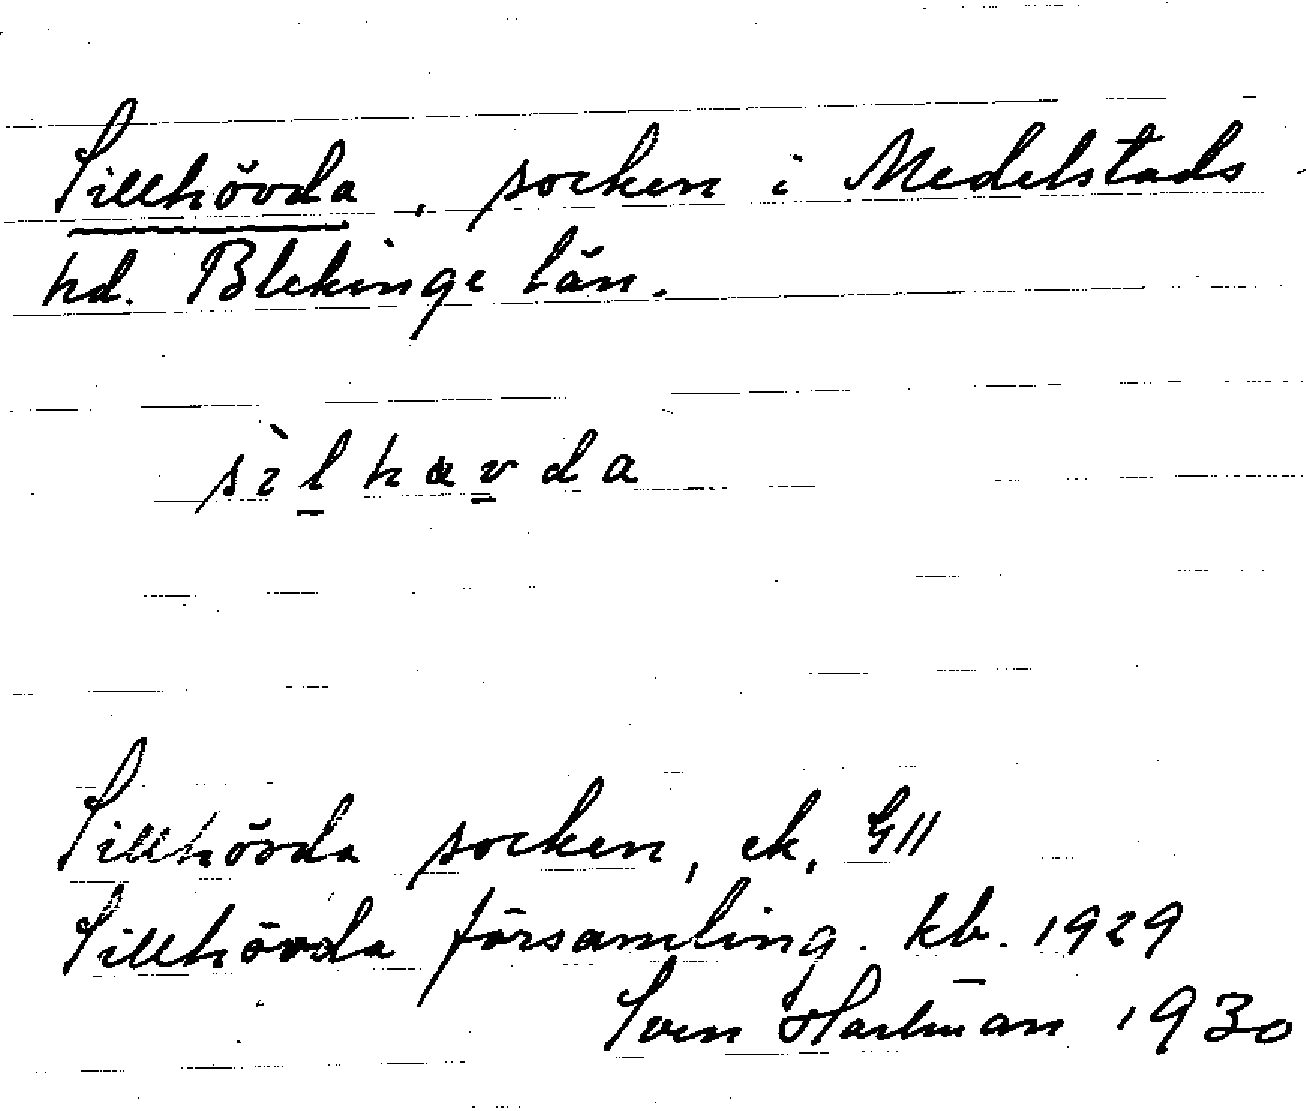 Sillhövda, socken i Medelstads
hd. Blekinge län.
sìlhavda
Sillhövda socken, ek. G11
Sillhövda församling. kb. 1929
Sven Hartman 1930